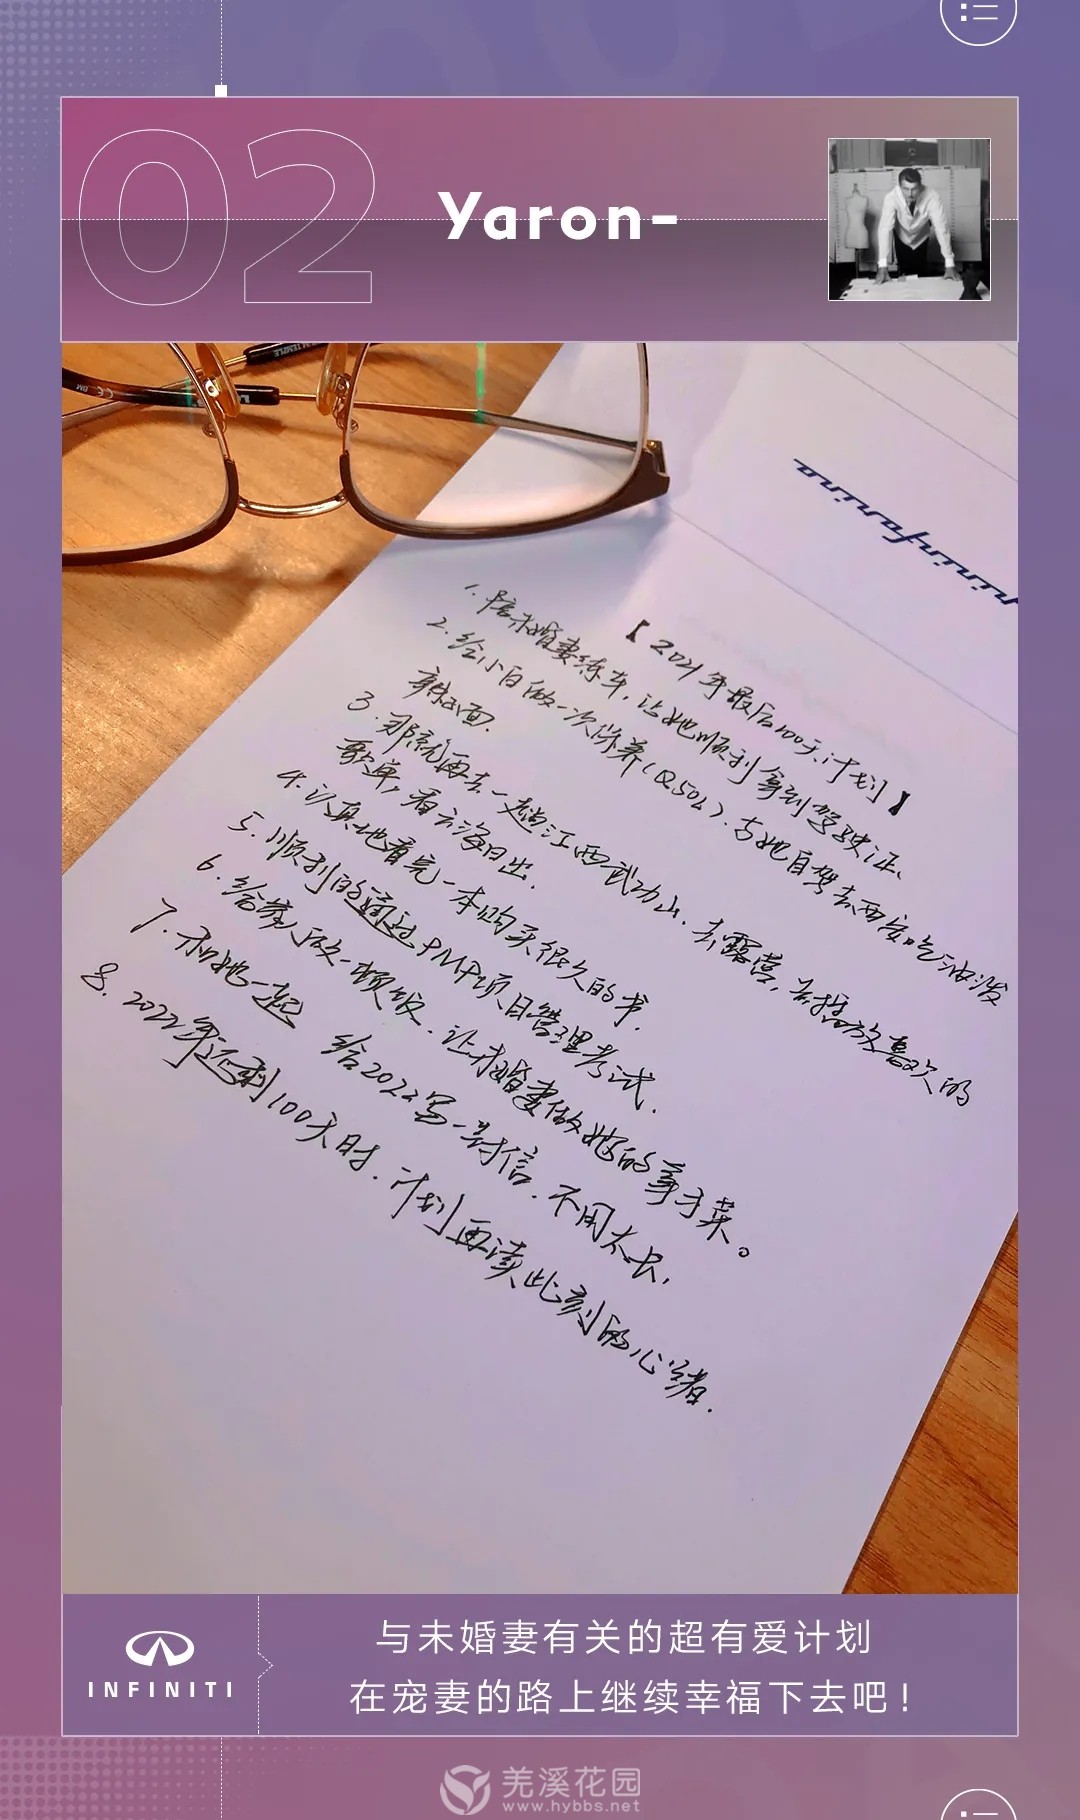 02
Yaron-
pininfarina
【2021年最后100天计划】
1.陪未婚妻练车,让她顺利拿到驾驶证、
2.给小白做一次保养(Q50L).与她自驾去西安吃油泼
辣子面.
3.那就再去一趟江西武功山.去露营,去播放喜欢的
歌单,看云海日出.
4.认真地看完一本购买很久的书.
5.顺利的通过PMP项目管理考试.
6.给家人做一顿饭.让未婚妻做她的拿手菜。
7.和她一起 给2022写一封信.不用太长,
8.2022年还剩100天时.计划再读此刻的心绪.
INFINITI
与未婚妻有关的超有爱计划
在宠妻的路上继续幸福下去吧!
羌溪花园
www.hybbs.net